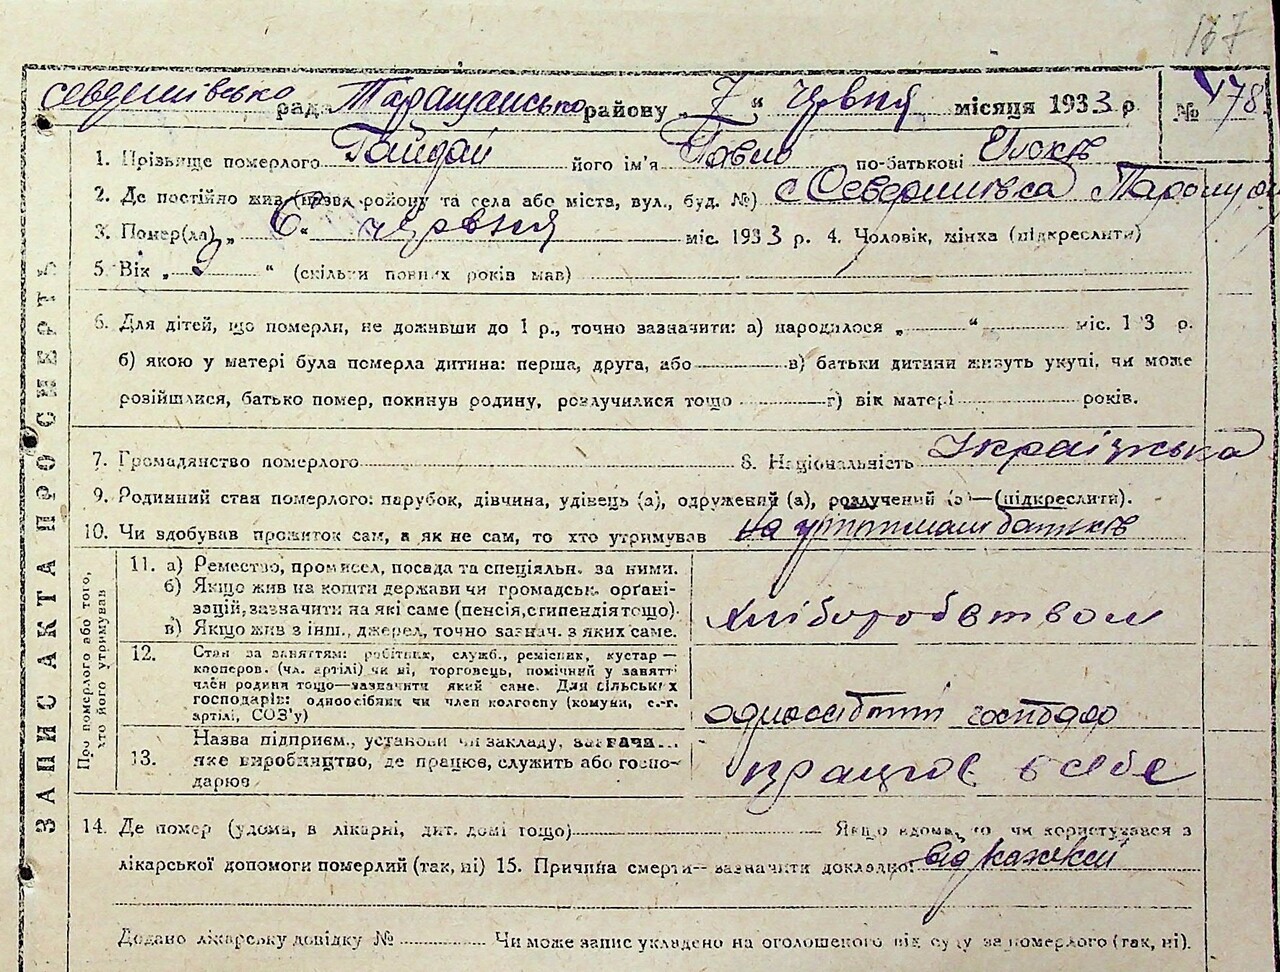 137
рада Таращансько району „7" червня місяця 1933 р. № 178
1. Прізвище померлого Гайдай його ім'я Павло по-батькові
2. Де постійно жив (назва району та села або міста, вул., буд. №) с
3. Помер(ла) „6" червня міс. 1933 р. 4. Чоловік, жінка (підкреслити)
5. Вік „3" (скільки повних років мав)
6. Для дітей, що померли, не доживши до 1 р., точно зазначити: а) народилося „ " міс. 193 р.
б) якою у матері була померла дитина: перша, друга, або в) батьки дитини живуть укупі, чи може
розійшлися, батько помер, покинув родину, розлучилися тощо г) вік матері років.
7. Громадянство померлого 8. Національність Українська
9. Родинний стан померлого: парубок, дівчина, удівець (а), одружений (а), розлучений (а)—(підкреслити).
10. Чи здобував прожиток сам, а як не сам, то хто утримував на утриман батьків
ЗАПИС АКТА ПРО СМЕРТЬ
Про померлого або того, хто його утримував
11. а) Ремество, промисел, посада та спеціяльн. за ними.
б) Якщо жив на кошти держави чи громадськ. орґані-
зацій, зазначити на які саме (пенсія, стипендія тощо).
в) Якщо жив з інш., джерел, точно зазнач. з яких саме.
хліборобством
12. Стан за заняттям: робітник, служб., ремісник, кустар—
кооперов. (чл. артілі) чи ні, торговець, помічний у занятті
член родини тощо—зазначити який саме. Для сільських
господарів: одноосібник чи член колгоспу (комуни, с.-г.
артілі, СОЗ'у)
господар
13. Назва підприєм., установи чи закладу, зазнач
яке виробництво, де працює, служить або госпо-
дарює
працює в себе
14. Де помер (удома, в лікарні, дит. домі тощо) Якщо вдома, то чи користувався з
лікарської допомоги померлий (так, ні) 15. Причина смерти—зазначити докладно: від
Додано лікарську довідку № Чи може запис укладено на оголошеного від суду за померлого (так, ні).